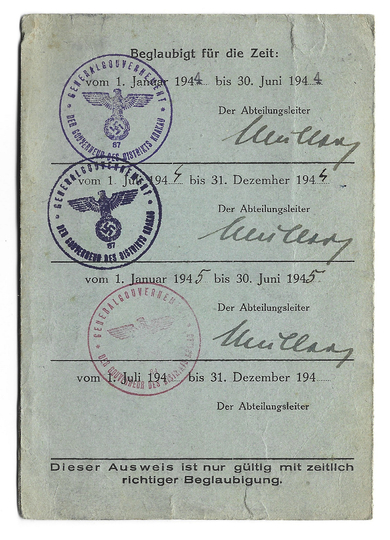 Beglaubigt für die Zeit:
vom 1. Januar 1944 bis 30. Juni 1944
Der Abteilungsleiter
GENERALGOUVERNEMENT
DER GOUVERNEUR DES DISTRIKTS KRAKAU
87
vom 1. Juli 1944 bis 31. Dezember 1944
Der Abteilungsleiter
GENERALGOUVERNEMENT
DER GOUVERNEUR DES DISTRIKTS KRAKAU
87
vom 1. Januar 1945 bis 30. Juni 1945
Der Abteilungsleiter
GENERALGOUVERNEM
DER GOUVERNEUR DES
vom 1. Juli 194 bis 31. Dezember 194
Der Abteilungsleiter
Dieser Ausweis ist nur gültig mit zeitlich
richtiger Beglaubigung.